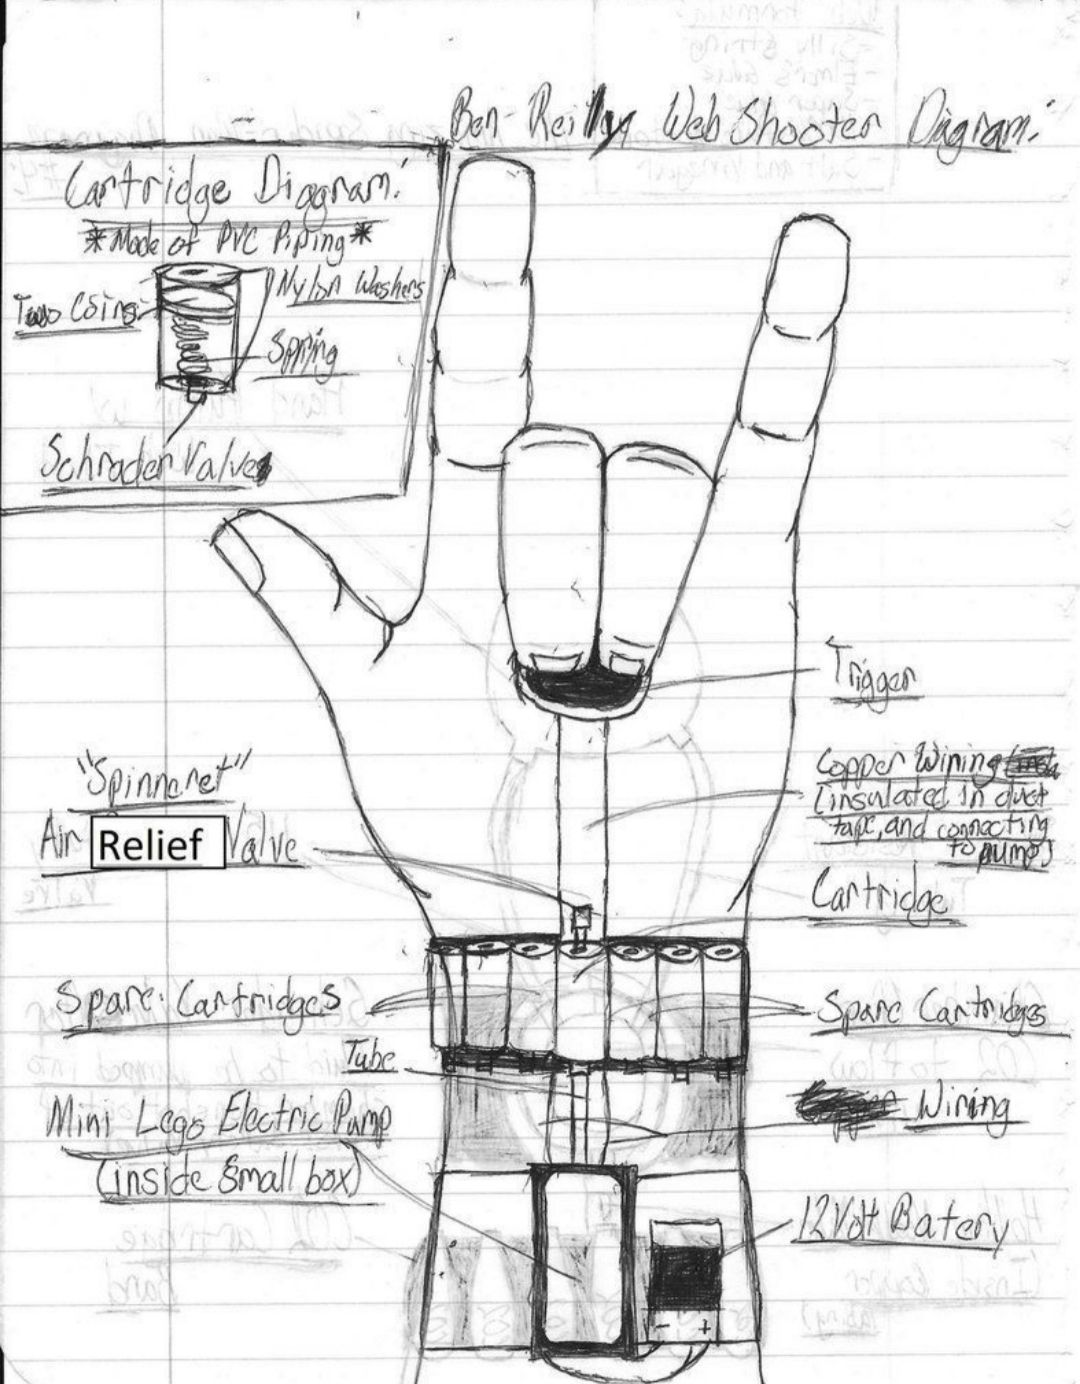 Ben Reilly Web Shooter Diagram:
Cartridge Diagram:
*Made of PVC Piping*
Nylon Washers
Two Coins
Spring
Schrader Valve
Trigger
"Spinneret"
Air Relief Valve
Copper Wiring
(insulated in duct
tape, and connecting
to pump)
Cartridge
Spare Cartridges
Spare Cartridges
Tube
Mini Lego Electric Pump
(inside small box)
Wiring
12 Volt Batery
- +